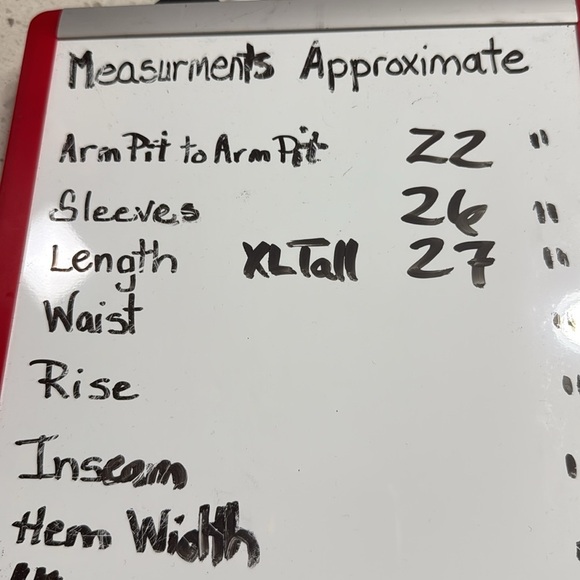 Measurments Approximate
Arm Pit to Arm Pit 22 "
Sleeves 26 "
Length XL Tall 27 "
Waist "
Rise "
Inseam "
Hem Width